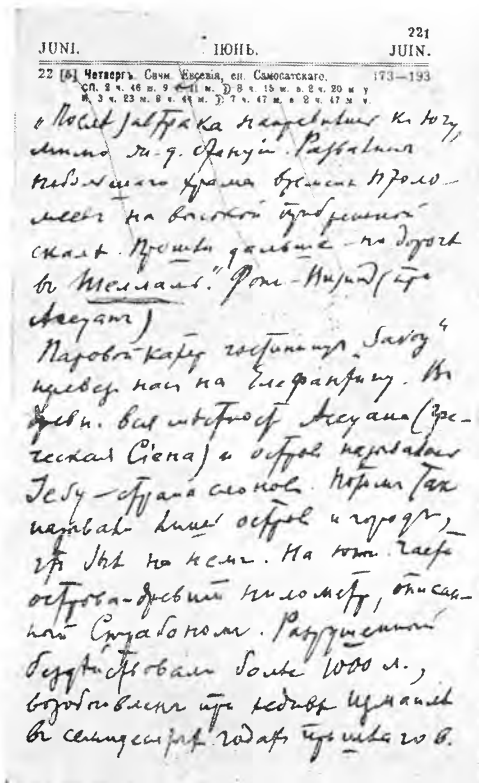 221
JUNI. ІЮНЬ. JUIN.
22 [5] Четвергъ. Свчм. Евсевія, еп. Самосатскаго. 173—193
„Послѣ завтрака направились къ югу,
мимо ж.-д. станціи. Развалины
небольшаго храма времени Птоло-
меевъ на высокой прибрежной
скалѣ. Прошли дальше – по дорогѣ
въ Шеллаль.“ (при
Ассуанѣ)
Паровой катер гостиницы „Savoy“
перевез насъ на Елефантину. Въ
древн. вся мѣстность Ассуана (Гре-
ческая Сіена) и остров назывался
Јебу – страна слонов. Потом так
называли лишь остров и городъ,
на немъ. На южн. части
острова – древній нилометр, описан-
ный Страбоном. Разрушенный
бездѣйствовали болѣе 1000 л.,
возобновленъ при хедивѣ Измаилѣ
въ семидесятых годах прошлаго в.